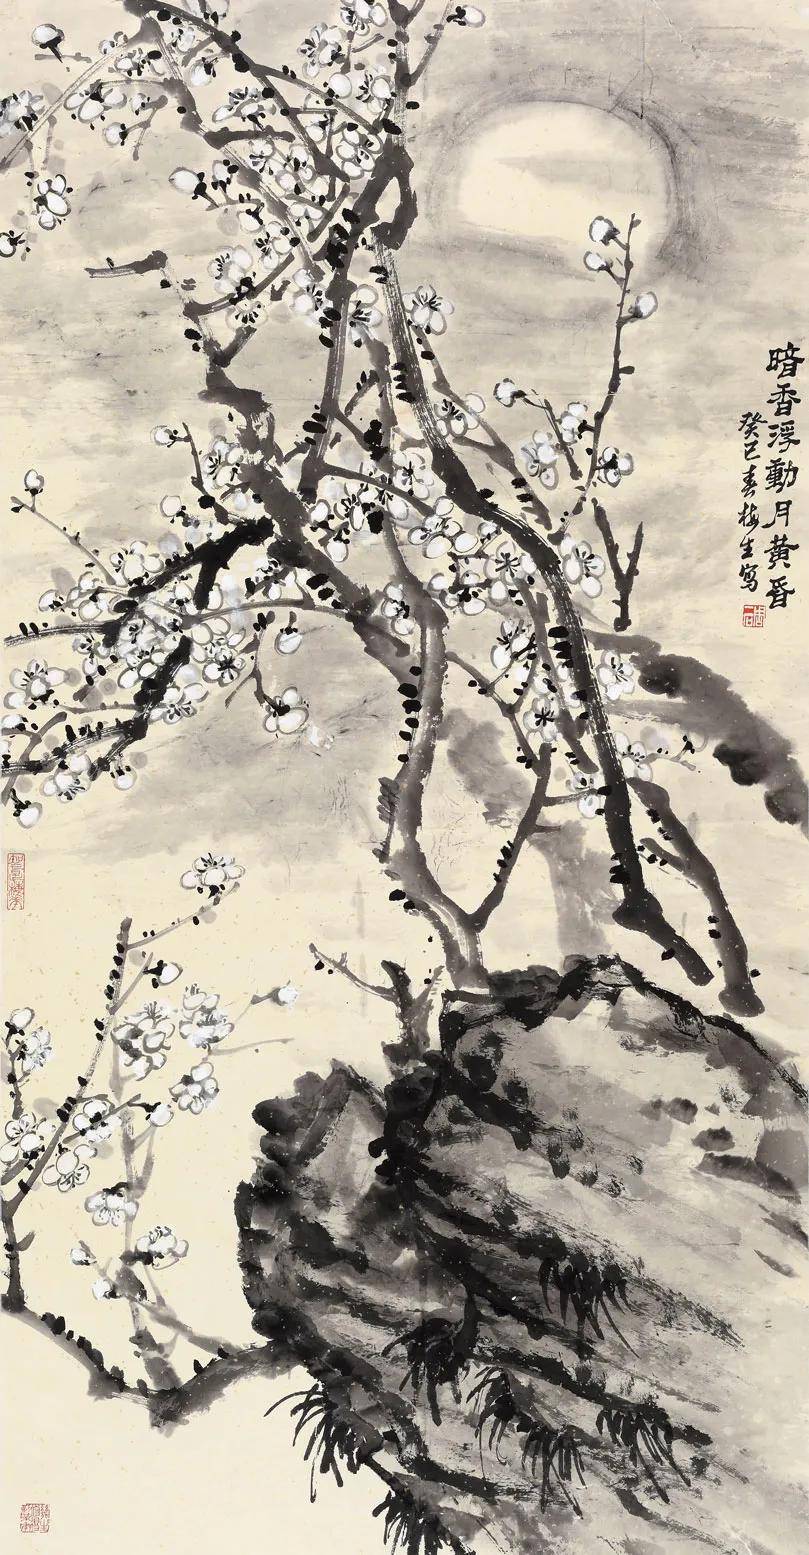 暗香浮動月黄昏
癸巳春梅生寫